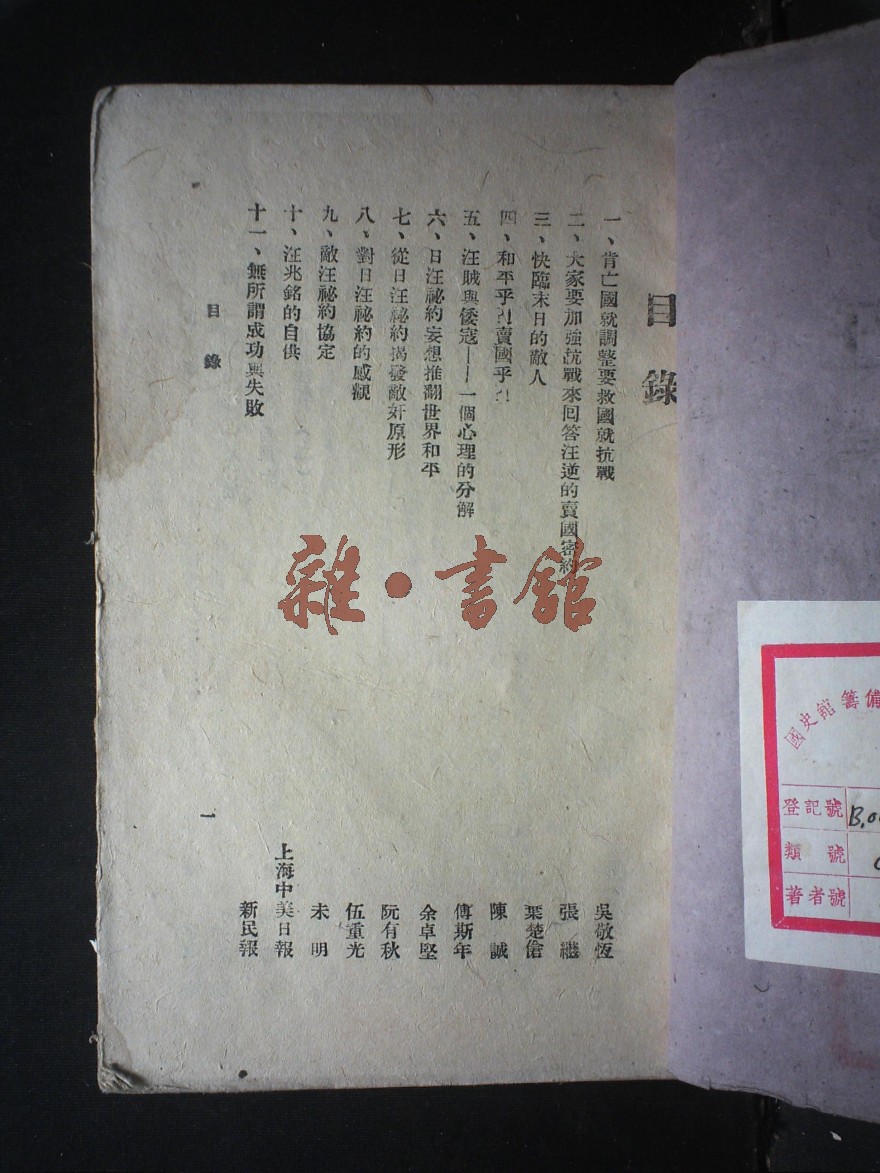 目錄
一、肯亡國就調整要救國就抗戰 吳敬恆
二、大家要加強抗戰來回答汪逆的賣國密約 張繼
三、快臨末日的敵人 葉楚傖
四、和平乎?!賣國乎?! 陳誠
五、汪賊與倭寇——一個心理的分解 傅斯年
六、日汪祕約妄想推翻世界和平 余卓堅
七、從日汪祕約揭發敵奸原形 阮有秋
八、對日汪祕約的感觀 伍重光
九、敵汪祕約協定 未明
十、汪兆銘的自供 上海中美日報
十一、無所謂成功與失敗 新民報
目錄
一
雜·書館
國史館籌備
登記號 B.0
類號
著者號